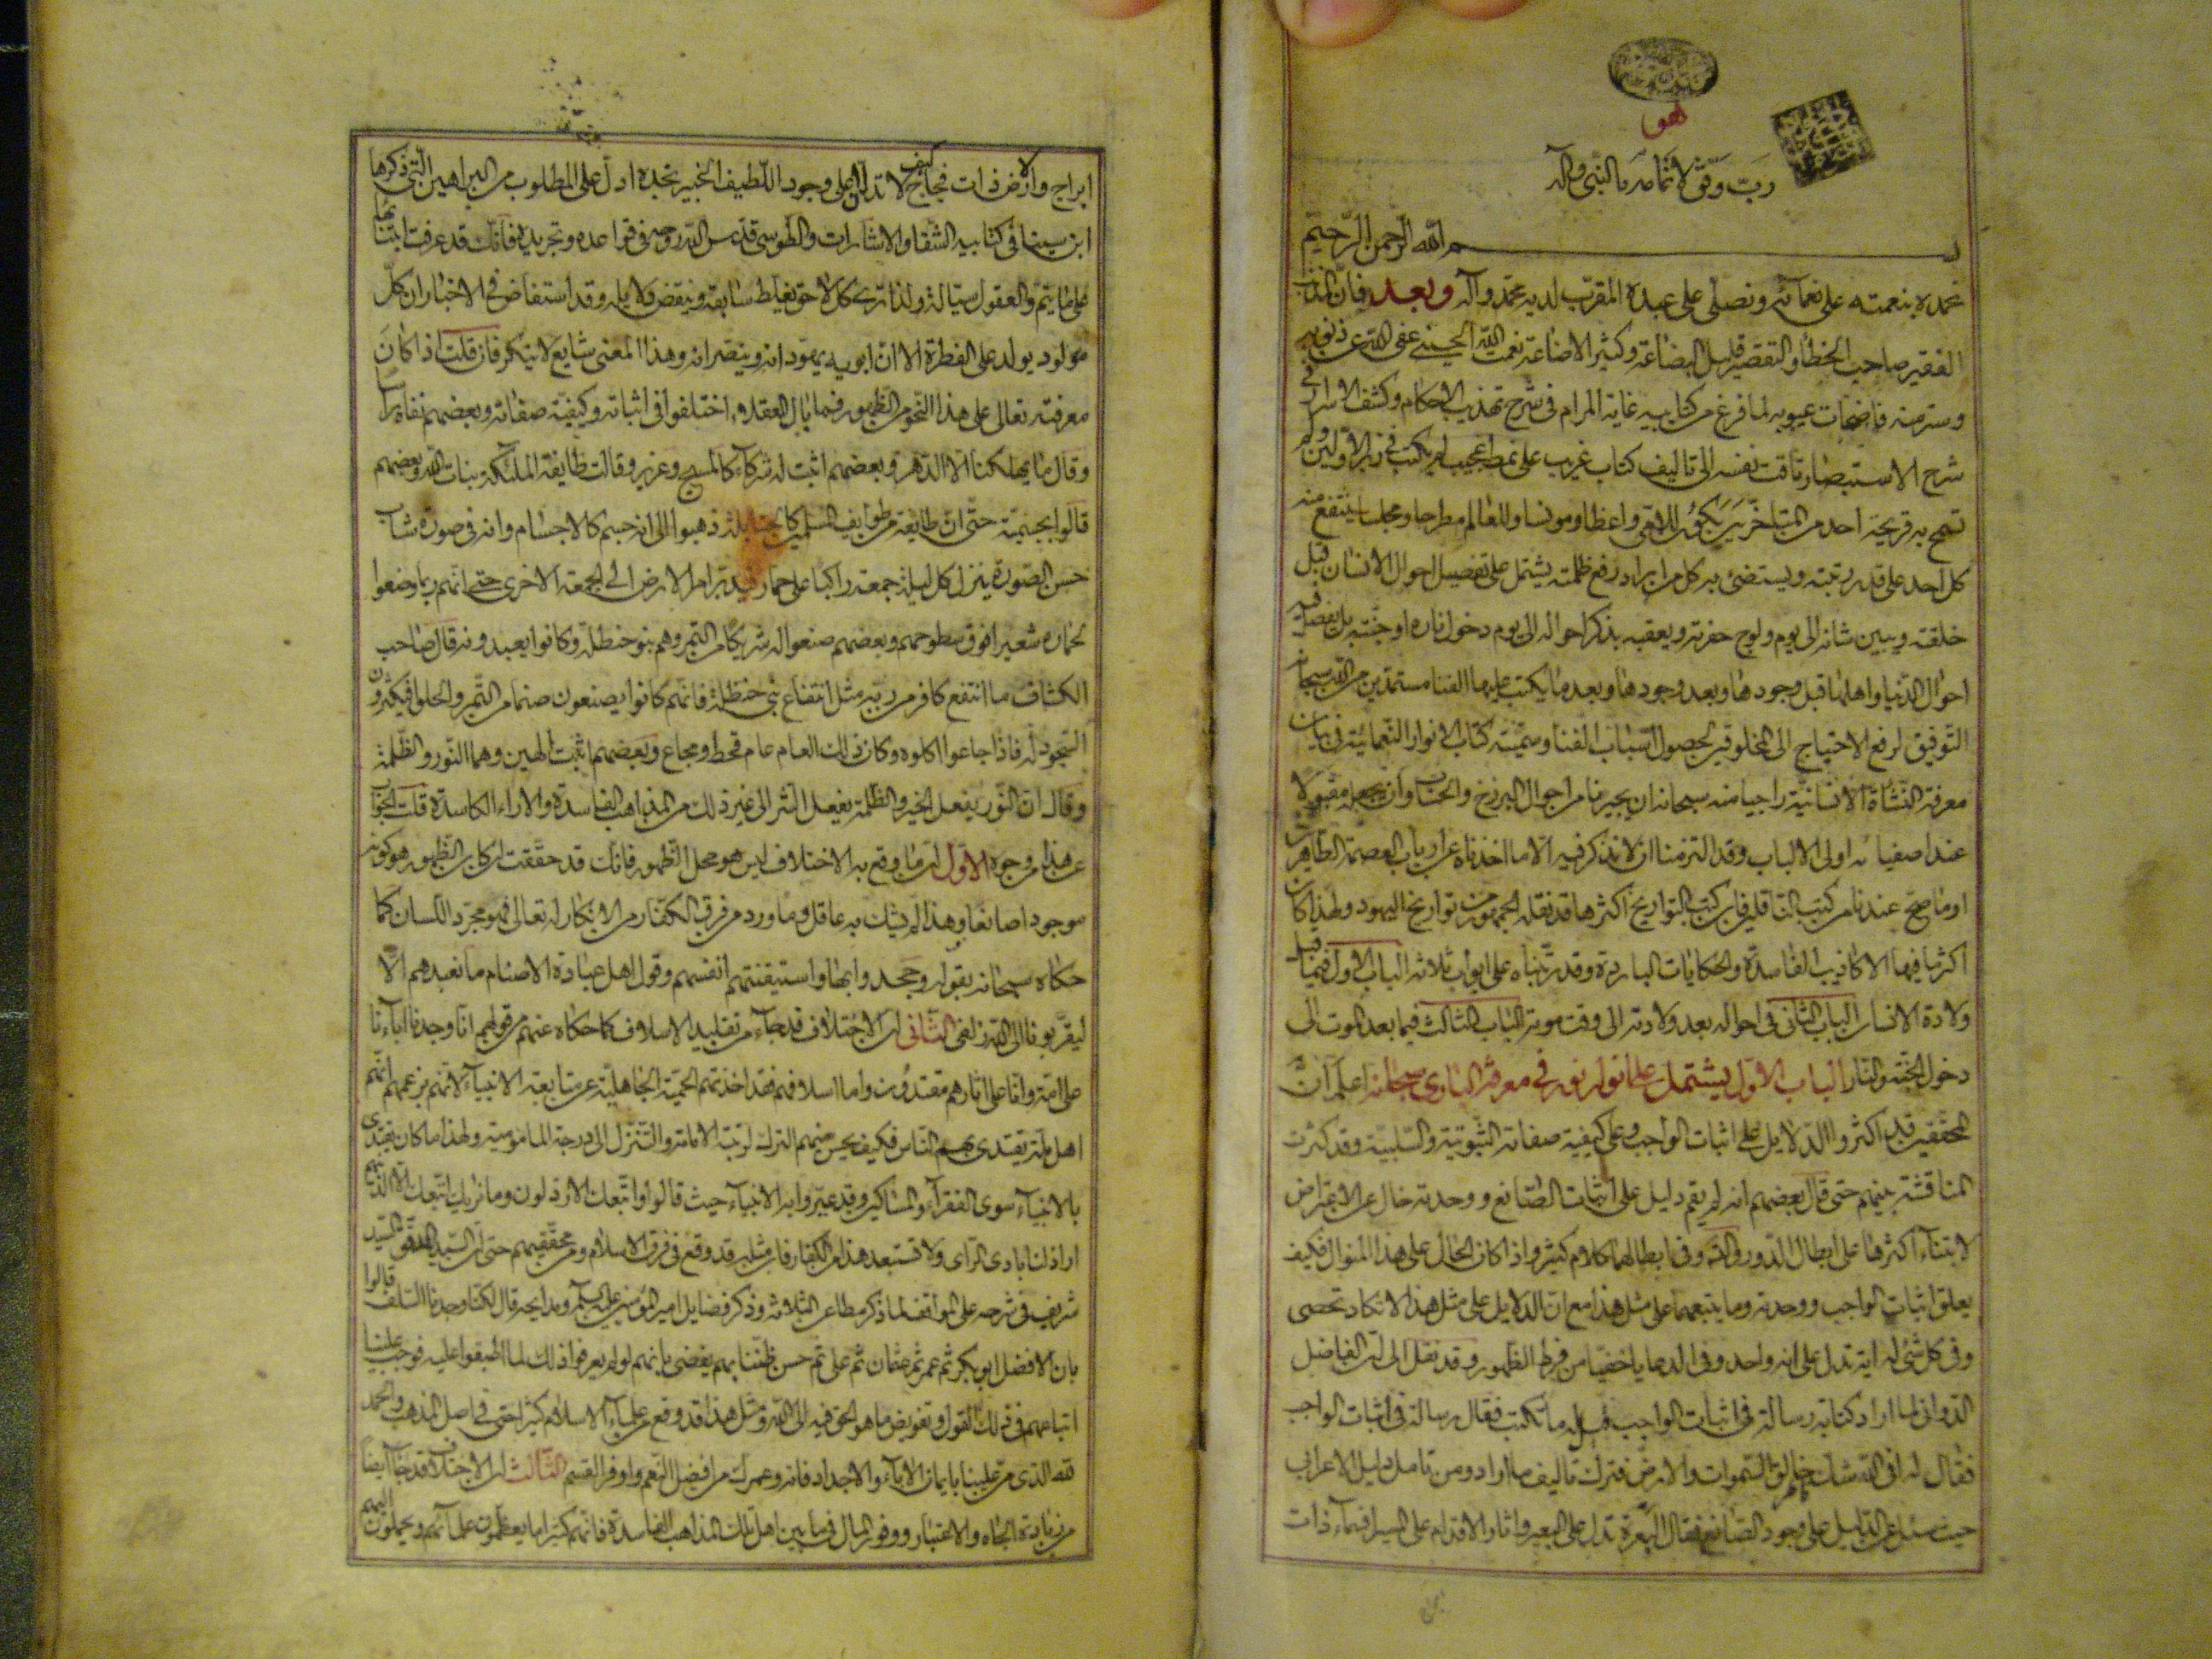 هو
رب وفق لاتمامه بالنبي وآله
بسم الله الرحمن الرحيم
نحمده بنعمته على نعمائه ونصلى على عبده المقرب لديه محمد وآله وبعد فان المذنب
الفقير صاحب الخطأ والتقصير قليل البضاعة وكثير الاضاعة نعمت الله الحسيني عفى الله عن ذنوبه
وستر منه فاضحات عيوبه لما فرغ من كتابيه غاية المرام في شرح تهذيب الاحكام وكشف الاسرار في
شرح الاستبصار تاقت نفسه الى تاليف كتاب غريب على نمط عجيب لم يكتب في زبر الاولين ولم
تسمح به قريحة احد من المتاخرين يكون للاتقى واعظا ومونسا وللعالم مطرحا ومجلسا ينتفع منه
كل احد على قدر رتبته ويستضئ به كل من اراد رفع ظلمته يشتمل على تفصيل احوال الانسان قبل
خلقته ويبين شانه الى يوم ولوج حفرته ويعقبه بذكر احواله الى يوم دخول ناره او جنته بل يفصل فيه
احوال الدنيا واهلها قبل وجودها وبعد وجودها وبعد ما يكتب عليها الفنا مستمدين من الله سبحانه
التوفيق لرفع الاحتياج الى المخلوقين لحصول اسباب الفنا وسميته كتاب الانوار النعمانية في بيان
معرفة النشأة الانسانية راجيا منه سبحانه ان يجيرنا من احوال البرزخ والحساب وان يجعله مقبولا
عند اصفيائه اولى الالباب وقد التزمنا ان لا نذكر فيه الا ما اخذناه عن ارباب العصمة الطاهرين
او ما صح عندنا من كتب الناقلين فان كتب التواريخ اكثرها قد نقله الجمهور من تواريخ اليهود ولهذا كان
اكثر ما فيها الاكاذيب الفاسدة والحكايات الباردة وقد رتبناه على ابواب ثلاثة الباب الاول فيما قبل
ولادة الانسان الباب الثاني في احواله بعد ولادته الى وقت موته الباب الثالث فيما بعد الموت الى
دخول الجنة والنار الباب الاول يشتمل على انوار نور في معرفة الباري سبحانه اعلم ان
المحققين قد اكثروا الدلايل على اثبات الواجب وعلى كيفية صفاته الثبوتية والسلبية وقد كثرت
المناقشة بينهم حتى قال بعضهم انه لم يقم دليل على اثبات الصانع ووحدته خال عن الاعتراض
لابتناء اكثرها على ابطال الدور والتس وفى ابطالهما كلام كثير واذا كان الحال على هذا المنوال فكيف
يعلق اثبات الواجب ووحدته وما يتبعهما على مثل هذا مع ان الدلايل على مثل هذا لا تكاد تحصى
وفي كل شئ له اية تدل على انه واحد وفى الدعا يا خفيا من فرط الظهور وقد نقل الى ان الفاضل
الدوانى لما اراد كتابة رسالة في اثبات الواجب قيل له ما تكتب فقال رسالة في اثبات الواجب
فقال له افى الله شك خالق السموات والارض فترك تاليف ما اراد ومن تامل دليل الاعرابى
حيث سئل عن الدليل على وجود الصانع فقال البعرة تدل على البعير واثار الاقدام على السير افسماء ذات
ابراج والارض ذات فجاج كيف لا تدلان على وجود اللطيف الخبير تجده ادل على المطلوب من البراهين التي ذكرها
ابن سينا في كتابيه الشفا والاشارات والطوسى قدس الله روحه في قواعده وتجريده فانك قد عرفت ابتنائها
على ما يتم والعقول سيالة ولذا ترى كل لاحق يغلط سابقه وينقض دلايله وقد استفاض في الاخبار ان كل
مولود يولد على الفطرة الا ان ابويه يهودانه وينصرانه وهذا المعنى شايع لا ينكر فان قلت اذا كان
معرفته تعالى على هذا النحو من الظهور فما بال العقلاء اختلفوا في اثباته وكيفية صفاته وبعضهم نفاه راسا
وقال ما يهلكنا الا الدهر وبعضهم اثبت له شركاء كالمسيح وعزير وقالت طايفة الملئكة بنات الله وبعضهم
قالوا بجسميته حتى ان طايفة من طوايف المسلمين كالحنابلة ذهبوا الى انه جسم كالاجسام وانه في صورة شاب
حسن الصورة ينزل كل ليلة جمعة راكبا على حمار فيدبر امر الارض الى الجمعة الاخرى حتى انهم ربما وضعوا
لحماره شعيرا فوق سطوحهم وبعضهم صنعوا له شريكا من التمر وهم بنو حنظلة وكانوا يعبدونه قال صاحب
الكشاف ما انتفع كافر من ربه مثل انتفاع بنى حنظلة فانهم كانوا يصنعون صنما من التمر والحلوا فيكثرون
السجود له فاذا جاعوا اكلوه وكان ذلك العام عام قحط ومجاع وبعضهم اثبت الهين وهما النور والظلمة
وقال ان النور يفعل الخير والظلمة يفعل الشر الى غير ذلك من المذاهب الفاسدة والاراء الكاسدة قلت الجواب
عن هذا من وجوه الاول ان ما وقع به الاختلاف ليس هو محل الظهور فانك قد حققت ان كان الظهور هو كونه
موجودا صانعا وهذا لم يشك به عاقل وما ورد من فرق الكفار من الانكار له تعالى فهو مجرد اللسان كما
حكاه سبحانه بقوله وجحدوا بها واستيقنتها انفسهم وقول اهل عبادة الاصنام ما نعبدهم الا
ليقربونا الى الله زلفى الثانى ان الاختلاف قد جاء من تقليد الاسلاف كما حكاه عنهم من قولهم انا وجدنا اباءنا
على امة وانا على اثارهم مقتدون واما اسلافهم فقد اخذتهم الحمية الجاهلية عن متابعة الانبياء لانهم بزعمهم انهم
اهل ملة يقتدى بهم الناس فكيف يحسن منهم الترك لرتبة الامامة والتنزل الى درجة المامومية ولهذا ما كان يقتدى
بالانبياء سوى الفقراء والمساكين وقد عيروا به الانبياء حيث قالوا واتبعك الارذلون وما نريك اتبعك الا الذين هم
اراذلنا بادى الراى ولا تستبعد هذا من الكفار فان مثله قد وقع في فرق الاسلام ومن محققيهم حتى ان السيد المدقق السيد
شريف في شرحه على المواقف لما ذكر مطاعن الثلاثة وذكر فضايل امير المؤمنين عليه السلم ومدايحه قال لكنا وجدنا السلف قالوا
بان الافضل ابو بكر ثم عمر ثم عثمان ثم على ثم حسن ظننا بهم يقضى بانهم لو لم يعرفوا ذلك لما اطبقوا عليه فوجب علينا
اتباعهم في ذلك القول وتفويض ما هو الحق فيه الى الله ومثل هذا قد وقع من علماء الاسلام كثيرا حتى في اصل المذهب والحمد
لله الذى من علينا بايمان الاباء والاجداد فانه وعمرك من افضل النعم واوفر القسم الثالث ان الاختلاف قد جاء ايضا
من زيادة الجاه والاعتبار ووفور المال فيما بين اهل تلك المذاهب الفاسدة فانهم كثيرا ما يعظمون علمائهم ويحملون اليهم